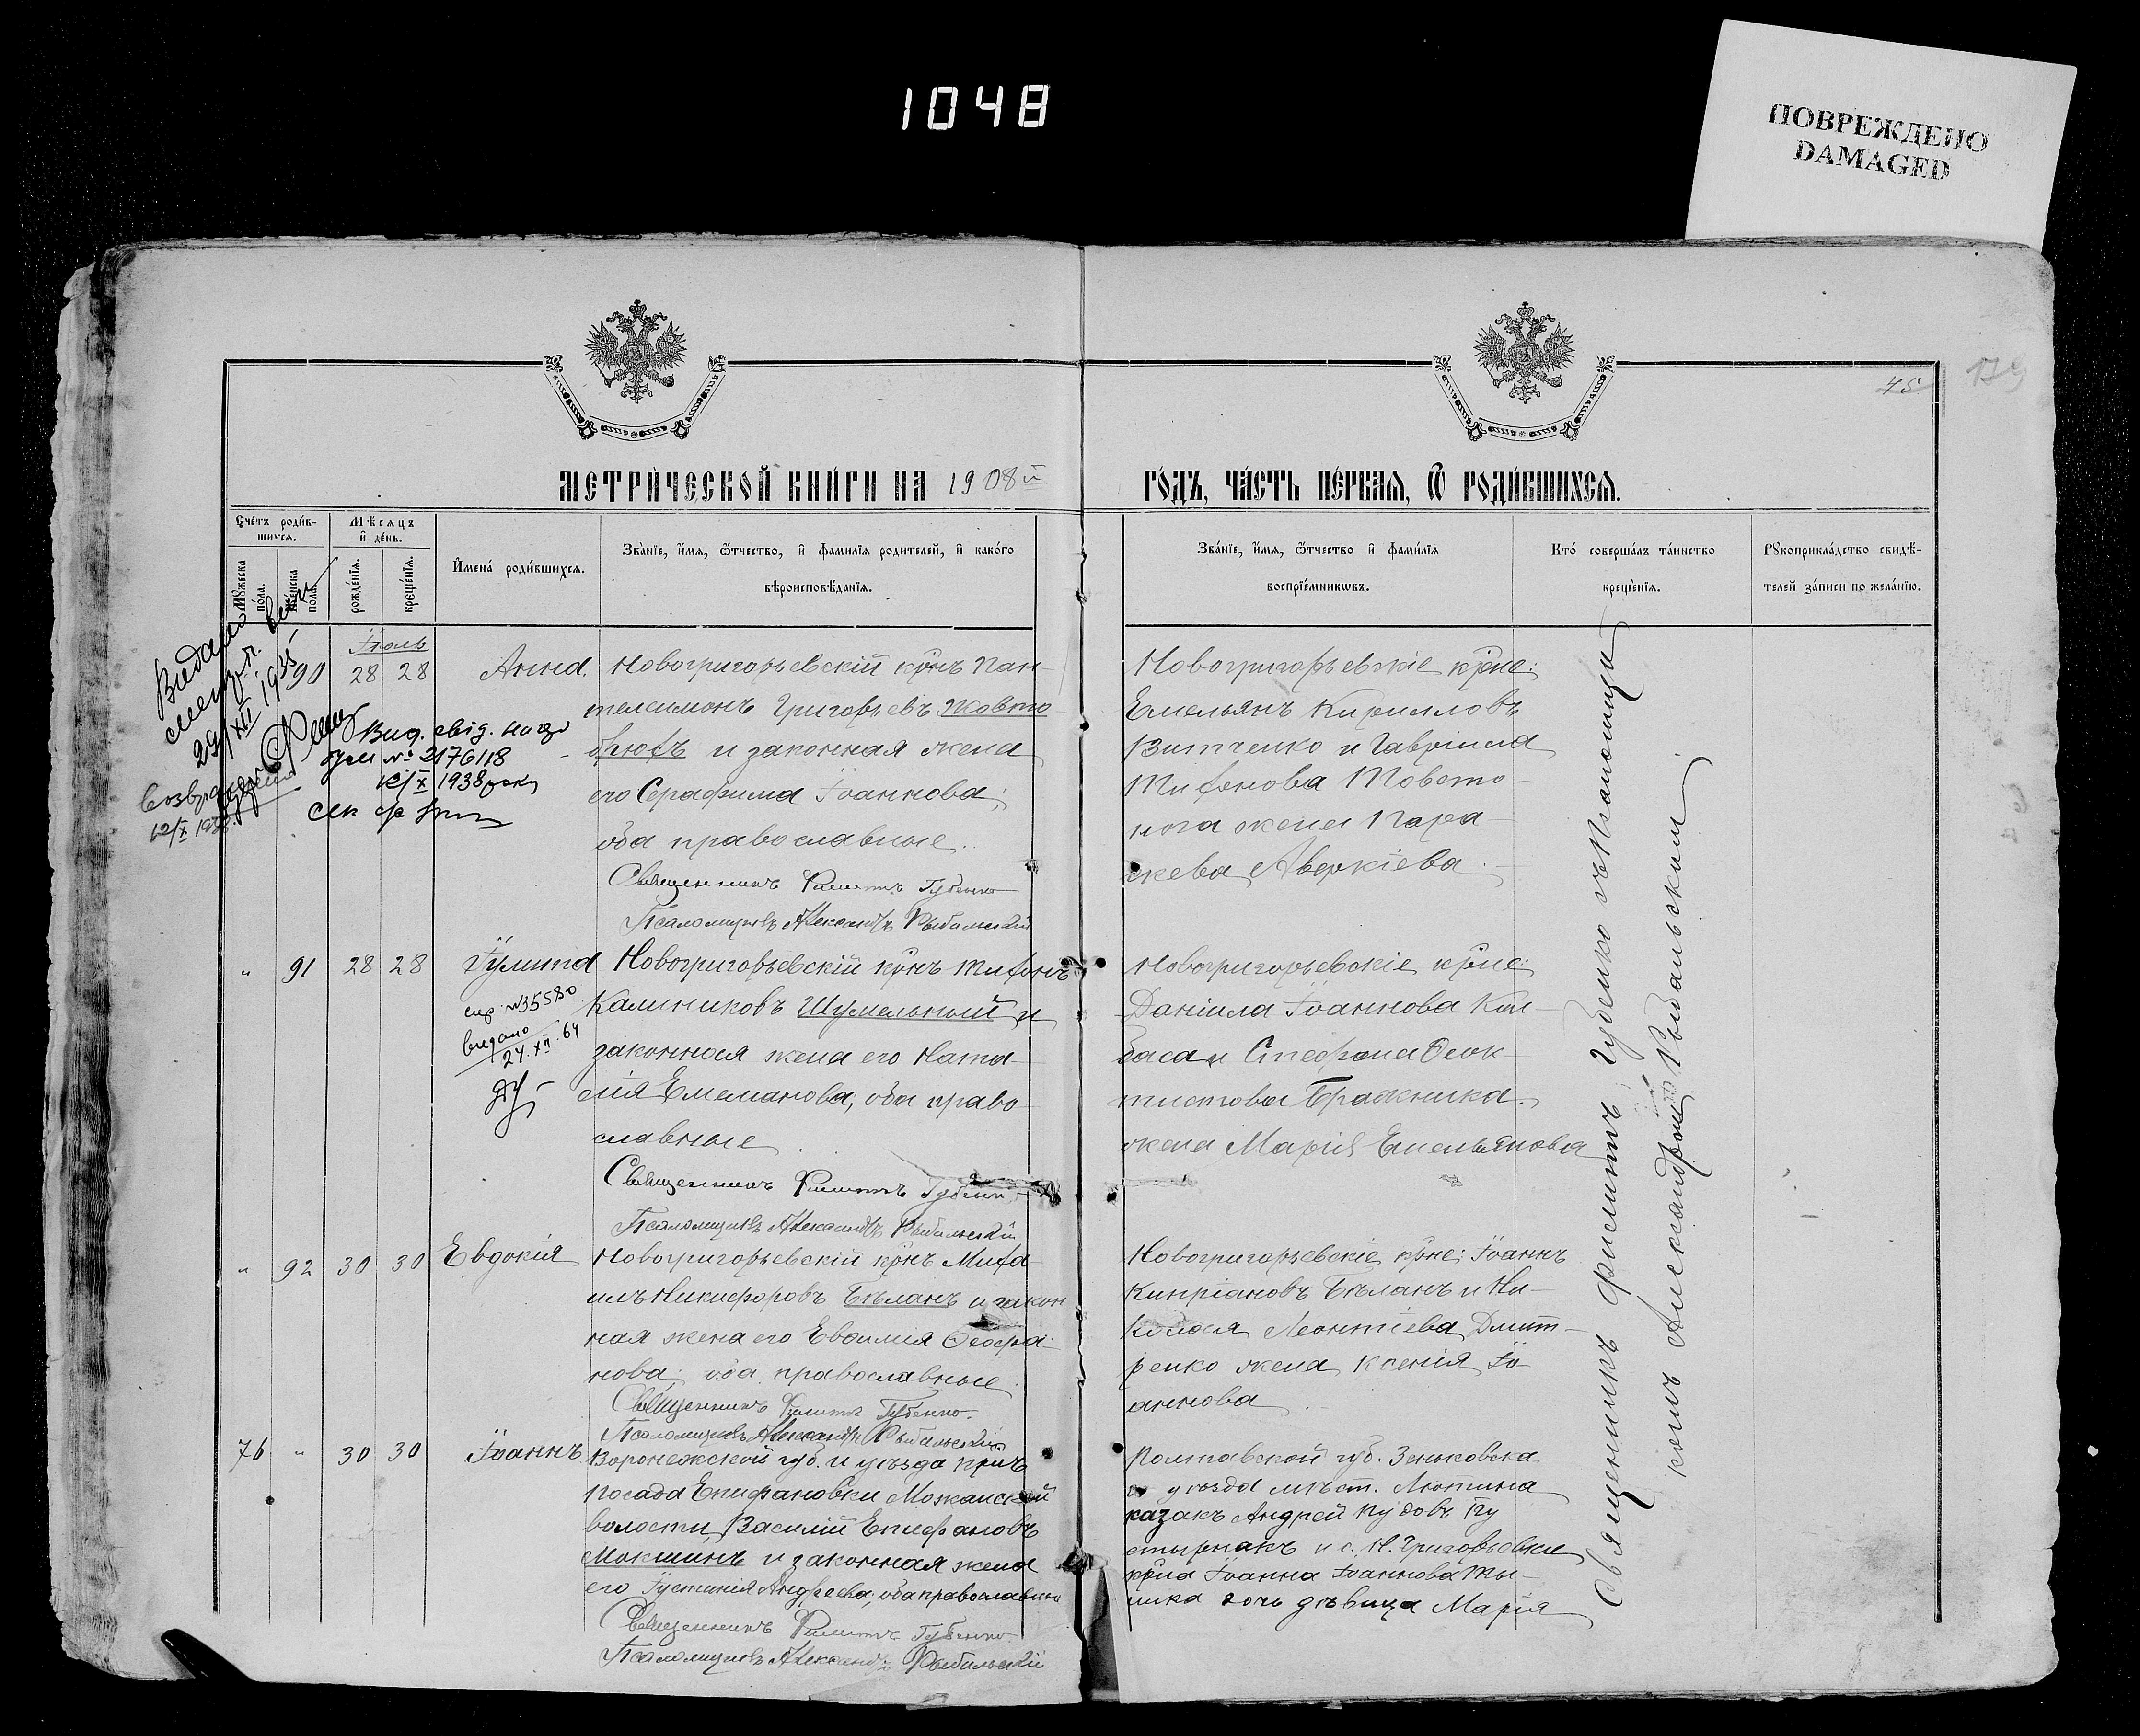 1048
ПОВРЕЖДЕНО
DAMAGED
179
45
МЕТРИ́ЧЕСКОЙ КНИ́ГИ НА 1908й
ГО́ДЪ, ЧА́СТЬ ПЕ́РВАЯ, Ѿ РОДИ́ВШИХСЯ.
Сче́тъ роди́в-
шихся.
Мѣсяцъ
и҆ де́нь.
Мꙋжеска
по́ла.
Же́нска
пола.
рожде́нїѧ.
креще́нїѧ.
И҆мена́ роди́вшихся.
Зва́нїе, и҆́мѧ, ѻ҆́тчество, и҆ фамилїѧ родителей, и҆ како́го
вѣроисповѣ́данїѧ.
Зва́нїе, и҆́мѧ, ѻ҆́тчество и҆ фами́лїѧ
воспрїе́мникѡвъ.
Кто́ соверша́лъ та́инство
креще́нїѧ.
Рꙋкоприкла́дство свидѣ́-
телей за́писи по жела́нїю.
Видано
метр. п.
29/XII 1935
Вид. свід. народ
№ 2176118
X 1938 року
Возвращен
12/X 1938.
Іюль
90 28 28 Анна.
Новогригорьевскій кр̃нъ Пан-
телеимонъ Григорьевъ Жовто-
брюхъ и законная жена
его Серафима Іоаннова;
оба православные.
Священникъ Филиппъ Губенко
Псаломщикъ Александръ Рыбальскій
Новогригорьевскіе кр̃не:
Емельянъ Кирилловъ
Витченко и Гавріила
Тихонова Товсто-
нога жена Пара-
скева Аверкіева.
" 91 28 28 Іулитта
спр. №35580
видано
24.XII.64
Новогригорьевскій кр̃нъ Тихонъ
Калиниковъ Шумельный и
законная жена его Ната-
лія Емельянова, оба право-
славные
Священникъ Филиппъ Губенко
Псаломщикъ Александръ Рыбальскій
Новогригорьевскіе кр̃не:
Даніила Іоаннова Кол-
баса и Стефана Ѳеок-
тистова Бражника
жена Марія Емельянова
" 92 30 30 Евдокія
Новогригорьевскій кр̃нъ Миха-
илъ Никифоровъ Бѣланъ и закон
ная жена его Евфимія Ѳеофа-
нова; оба православные
Священникъ Филиппъ Губенко.
Псаломщикъ Александръ Рыбальскій
Новогригорьевскіе кр̃не: Іоаннъ
Кипріановъ Бѣланъ и Ни-
колая Леонтіева Дмит-
ренко жена Ксенія Іо-
аннова
76 " 30 30 Іоаннъ
Воронежской губ. и уѣзда кр̃нъ
посада Епифановки Можайской
волости Василій Епифановъ
Мокшинъ и законная жена
его Іустинія Андреева, оба православные
Священникъ Филиппъ Губенко
Псаломщикъ Александръ Рыбальскій
Полтавской губ. Зеньковска
го уѣзда мѣст. Лютина
казакъ Андрей
и с. Н. Григорьевки
кр̃на Іоанна Іоаннова
дочь дѣвица Марія
Священникъ Филиппъ Губенко съ псаломщи
комъ Александромъ Рыбальскимъ